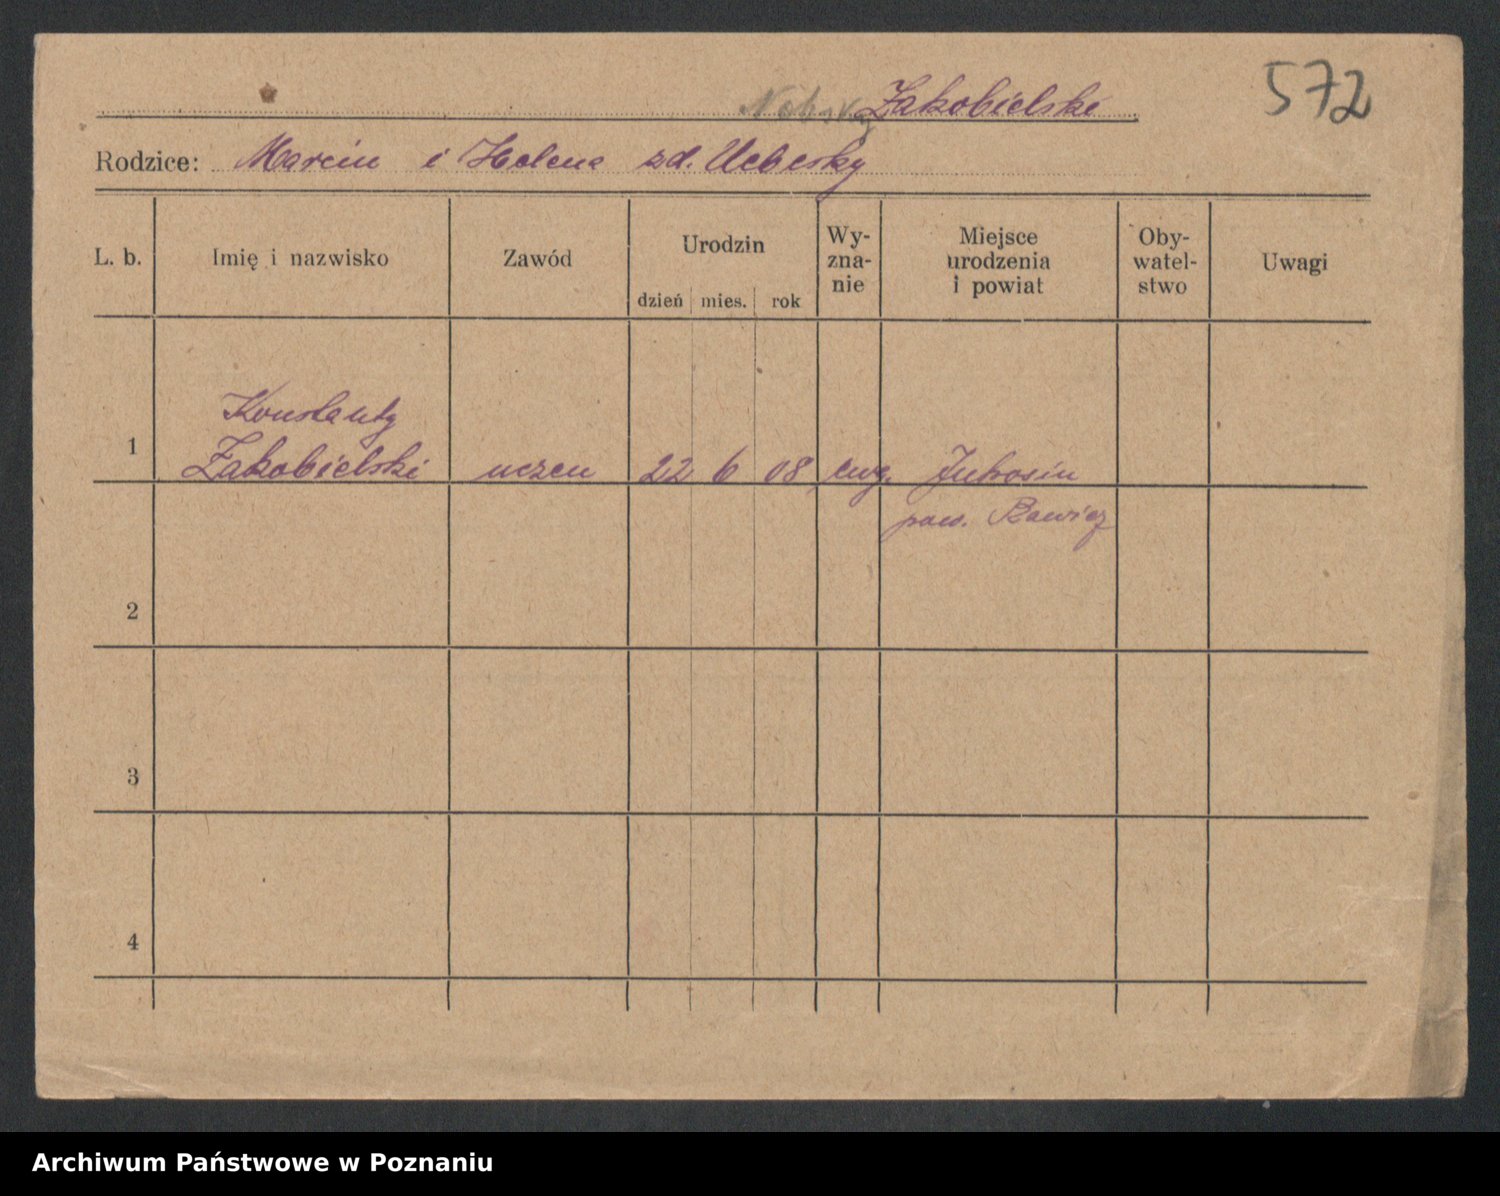 Zakobielski
572
Rodzice: Marcin i Helena zd.
L. b. Imię i nazwisko Zawód Urodzin dzień mies. rok Wy-zna-nie Miejsce urodzenia i powiat Oby-watel-stwo Uwagi
Konstanty
1 Zakobielski uczeń 22 6 08 ewg. Jutrosin
pow. Rawicz
2
3
4
Archiwum Państwowe w Poznaniu